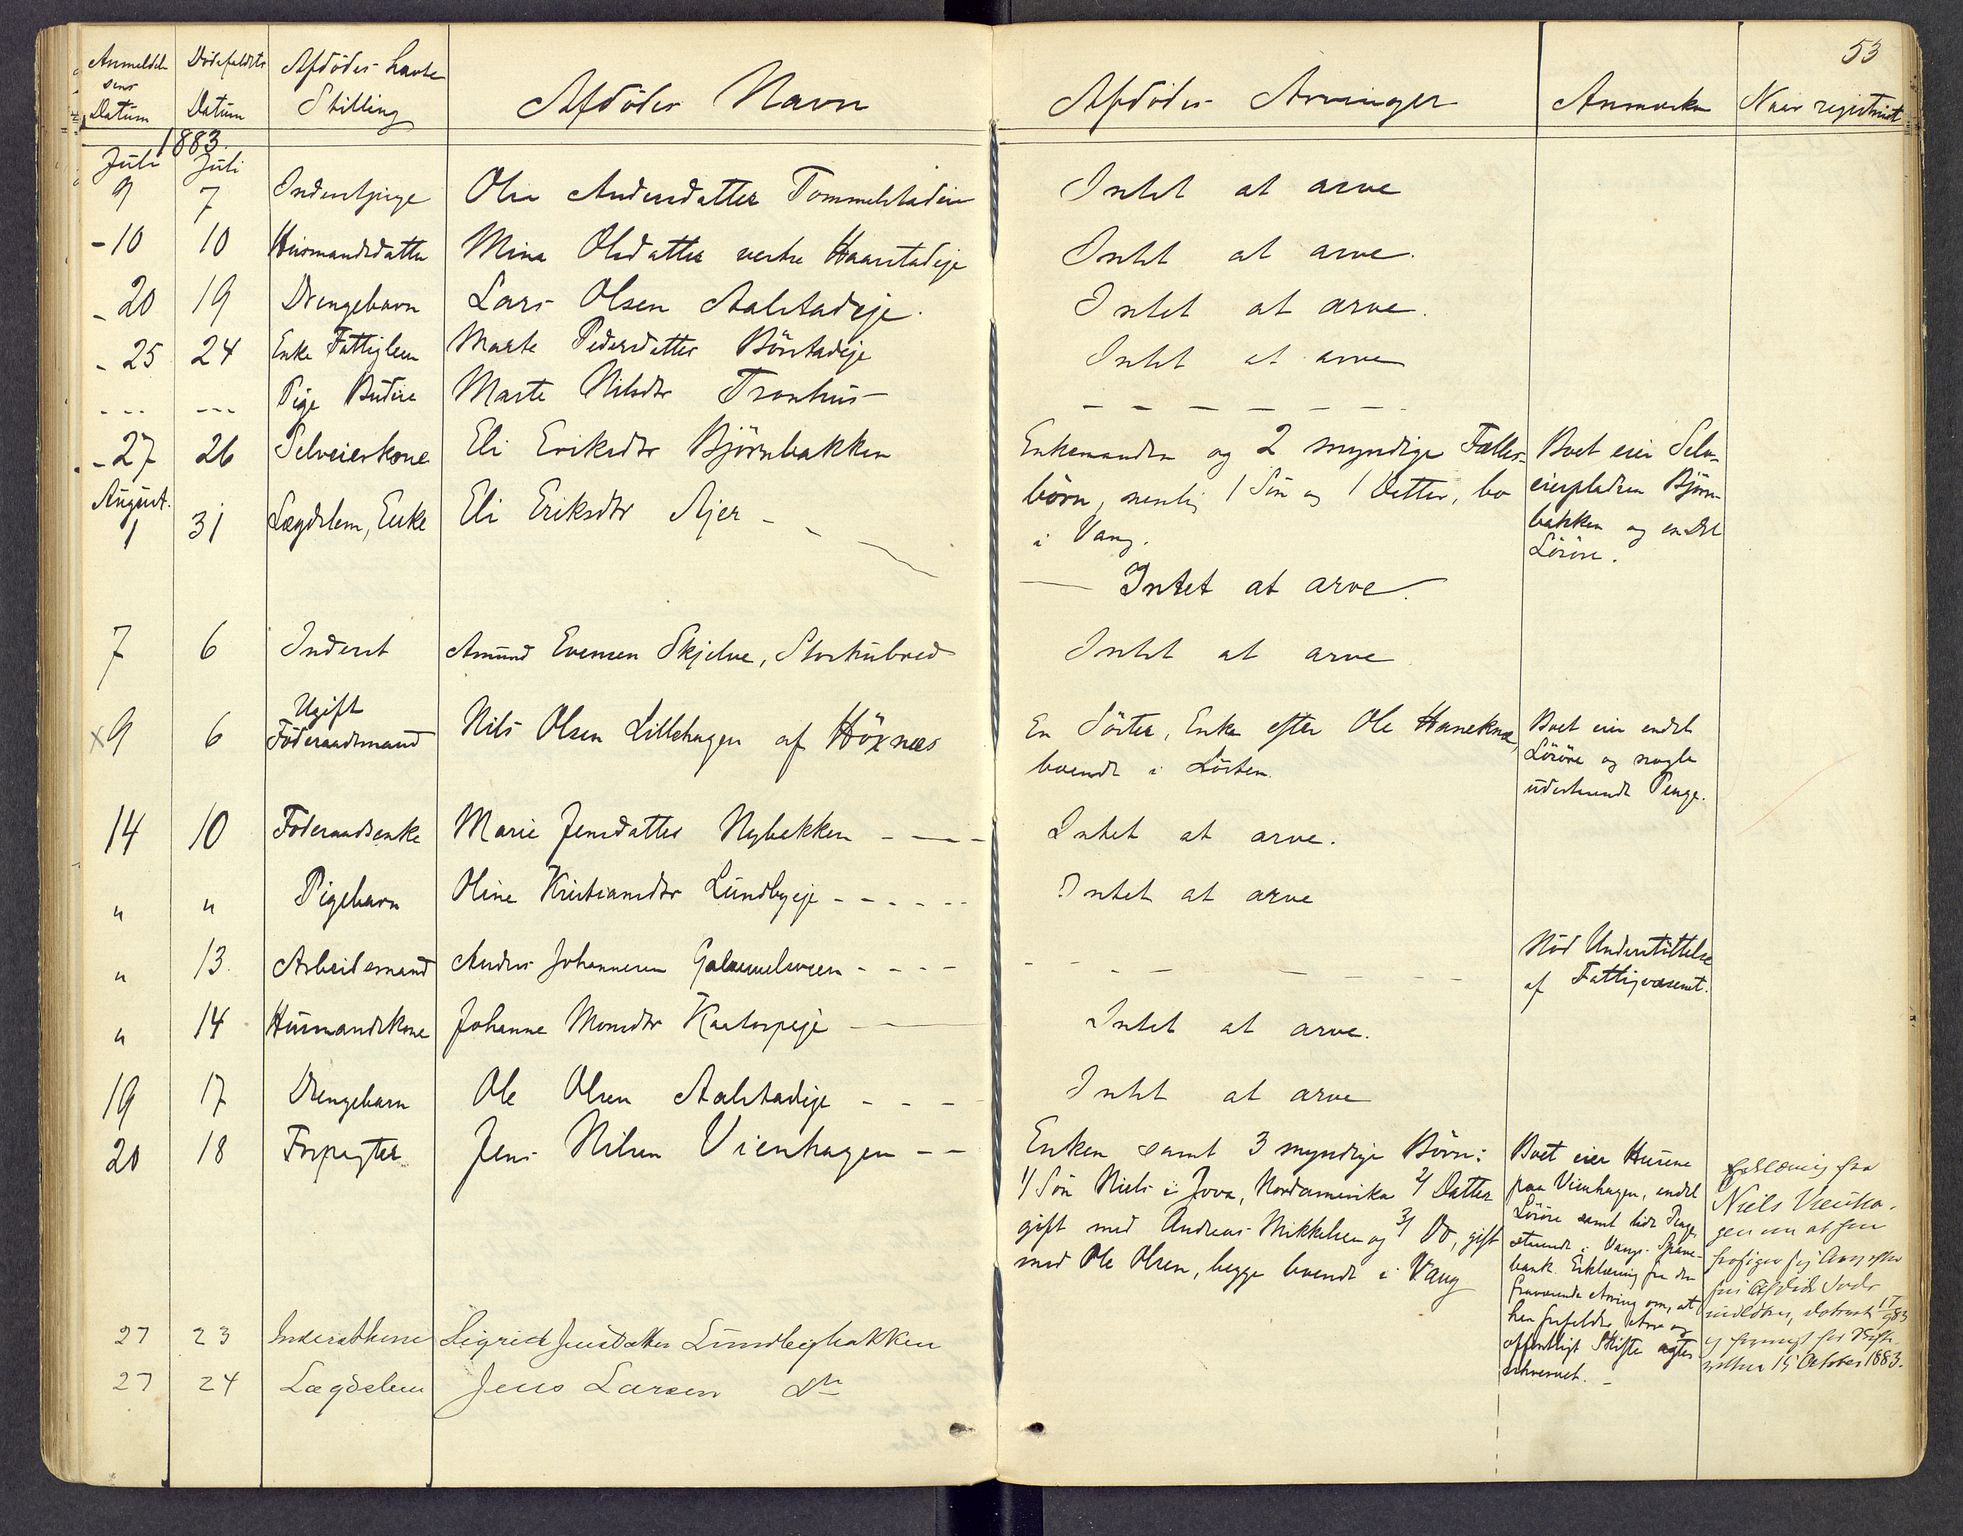 53
Anmeldel
sens
Datum
Dødsfaldets
Datum
Afdødes havte
Stilling
Afdødes Navn
Afdødes Arvinger
Anmærkn
Naar registreret
1883.
Juli Juli
9 7 Inderstpige Olea Andersdatter Intet at arve
- 10 10 Husmandsdatter Mina Olsdatter vestre Haarstadeje Intet at arve.
- 20 19 Drengebarn Lars Olsen Aalstadeje. Intet at arve.
- 25 24 Enke Fattiglem Marte Pedersdatter Bönstadeje Intet at arve
--- --- Pige Budeie Marte Nilsdtr Tronhus - - - - - - -
- 27 26 Selveierkone Eli Eriksdtr Björnbakken Enkemanden og 2 myndige Fælles-
börn, nemlig 1 Sön og 1 Datter, bo
i Vang.
Boet eier Selv-
eierpladsen Björn-
bakken og en Del
Lösöre.
August.
1 31 Lægdslem, Enke Eli Eriksdtr Ajer - -
Intet at arve.
7 6 Inderst Amund Evensen Skjelve, Intet at arve
x 9 6 Ugift
Föderaadsmand Nils Olsen Lillehagen af Höxnæs En Söster, Enke efter Ole
boende i Löiten.
Boet eier endel
Lösöre og nogle
udestaaende Penge.
14 10 Föderaadsenke Marie Jensdatter Nybakken - - - - Intet at arve.
" " Pigebarn Oline Kristiansdtr Lundbyeje - - - - - - Intet at arve
" 13. Arbeidsmand Anders Johannesen - - - - - - - - - - - -
Nöd Understöttelse
af Fattigvæsenet.
" 14 Husmandskone Johanne Monsdtr Kaatorpeje - - Intet at arve.
19 17 Drengebarn Ole Olsen Aalstadeje - - - Intet at arve
20 18 Forpagter Jens Nilsen Vienhagen - - Enken samt 3 myndige Börn:
1/ Sön Niels i Jova, Nordamerika 2/ Datter
gift med Andreas Mikkelsen og 3/ Do, gift
med Ole Olsen, begge boende i Vang
Boet eier Husene
paa Vienhagen, endel
Lösöre samt lidt Penge
staaende i Vangs Spare-
bank. Erklæring fra den
fraværende Arving om, at
han frafalder Arv og
offentligt Skifte agtes
erhvervet. -
Erklæring fra
Niels Vienha-
gen om at han
frasiger sig Arv efter
sin Afdöde Fader
indlöben, dateret 1/9 83
og fremlagt for Skifte-
retten 15 October 1883.
27 23 Inderstkone Sigrid Jensdatter Lundbybakken
27 24 Lægdslem Jens Larsen Do